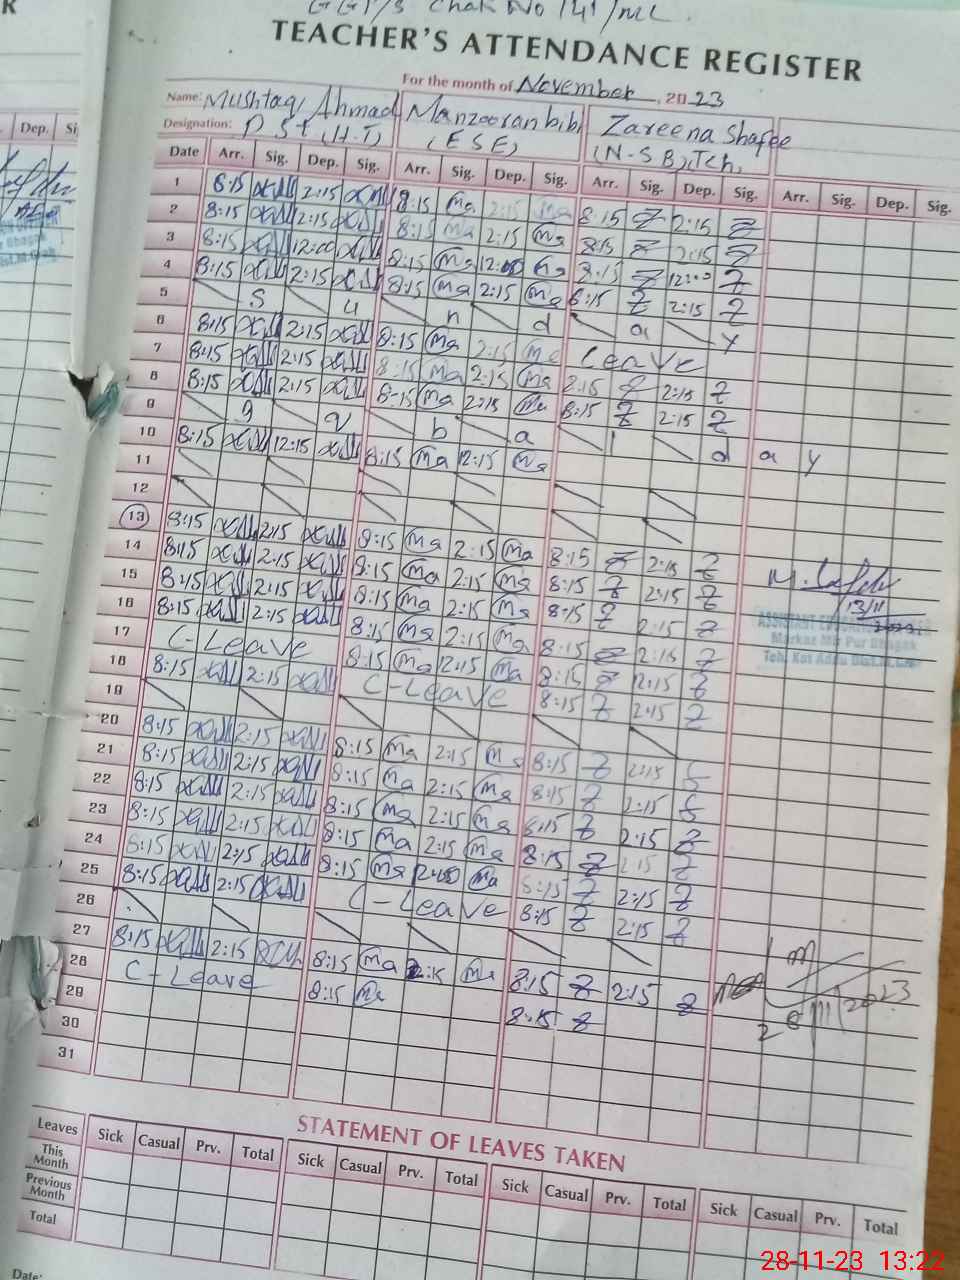 GGPS Chak No 141/ML.
TEACHER'S ATTENDANCE REGISTER
For the month of November, 2023
Name: Mushtaq Ahmad Manzooran bibi Zareena Shafee
Designation: P.S.T.(H.T) (ESE) (N-SB),Tch,
Dep. Si
Date Arr. Sig. Dep. Sig. Arr. Sig. Dep. Sig. Arr. Sig. Dep. Sig. Arr. Sig. Dep. Sig.
1 8:15 2:15 8:15 Ma 2:15 Ma 8:15 Z 2:15 Z
2 8:15 2:15 8:15 Ma 2:15 Ma 8:15 Z 2:15 Z
3 8:15 12:00 8:15 Ma 12:00 Ma 8:15 Z 12:00 Z
4 8:15 2:15 8:15 Ma 2:15 Ma 8:15 Z 2:15 Z
5 S u n d a y
6 8:15 2:15 8:15 Ma 2:15 Ma Leave
7 8:15 2:15 8:15 Ma 2:15 Ma 2:15 Z 2:15 Z
8 8:15 2:15 8:15 Ma 2:15 Ma 8:15 Z 2:15 Z
9 g q b a l d a y
10 8:15 12:15 8:15 Ma 12:15 Ma
11
12
13 8:15 2:15 8:15 Ma 2:15 Ma 8:15 Z 2:15 Z
14 8:15 2:15 8:15 Ma 2:15 Ma 8:15 Z 2:15 Z
15 8:15 2:15 8:15 Ma 2:15 Ma 8:15 Z 2:15 Z
16 8:15 2:15 8:15 Ma 2:15 Ma 8:15 Z 2:15 Z
17 C-Leave 8:15 Ma 12:15 Ma 8:15 Z 2:15 Z
18 8:15 2:15 C-Leave 8:15 Z 2:15 Z
19
20 8:15 2:15 8:15 Ma 2:15 Ma 8:15 Z 2:15
21 8:15 2:15 8:15 Ma 2:15 Ma 8:15 Z 2:15
22 8:15 2:15 8:15 Ma 2:15 Ma 8:15 Z 2:15 Z
23 8:15 2:15 8:15 Ma 2:15 Ma 8:15 Z 2:15 Z
24 8:15 2:15 8:15 Ma Ma 8:15 Z 2:15 Z
25 8:15 2:15 C-Leave 8:15 Z 2:15 Z
26
27 8:15 2:15 8:15 Ma 2:15 Ma 8:15 Z 2:15 Z
28 C-Leave 8:15 Ma 8:15 Z
29
30
31
13/11
ASSISTANT EDUCATION
Markaz Mir Pur Bhagal
Teh. Kot Addu
28/11/2023
STATEMENT OF LEAVES TAKEN
Leaves Sick Casual Prv. Total Sick Casual Prv. Total Sick Casual Prv. Total Sick Casual Prv. Total
This Month
Previous Month
Total
Date:
28-11-23 13:22